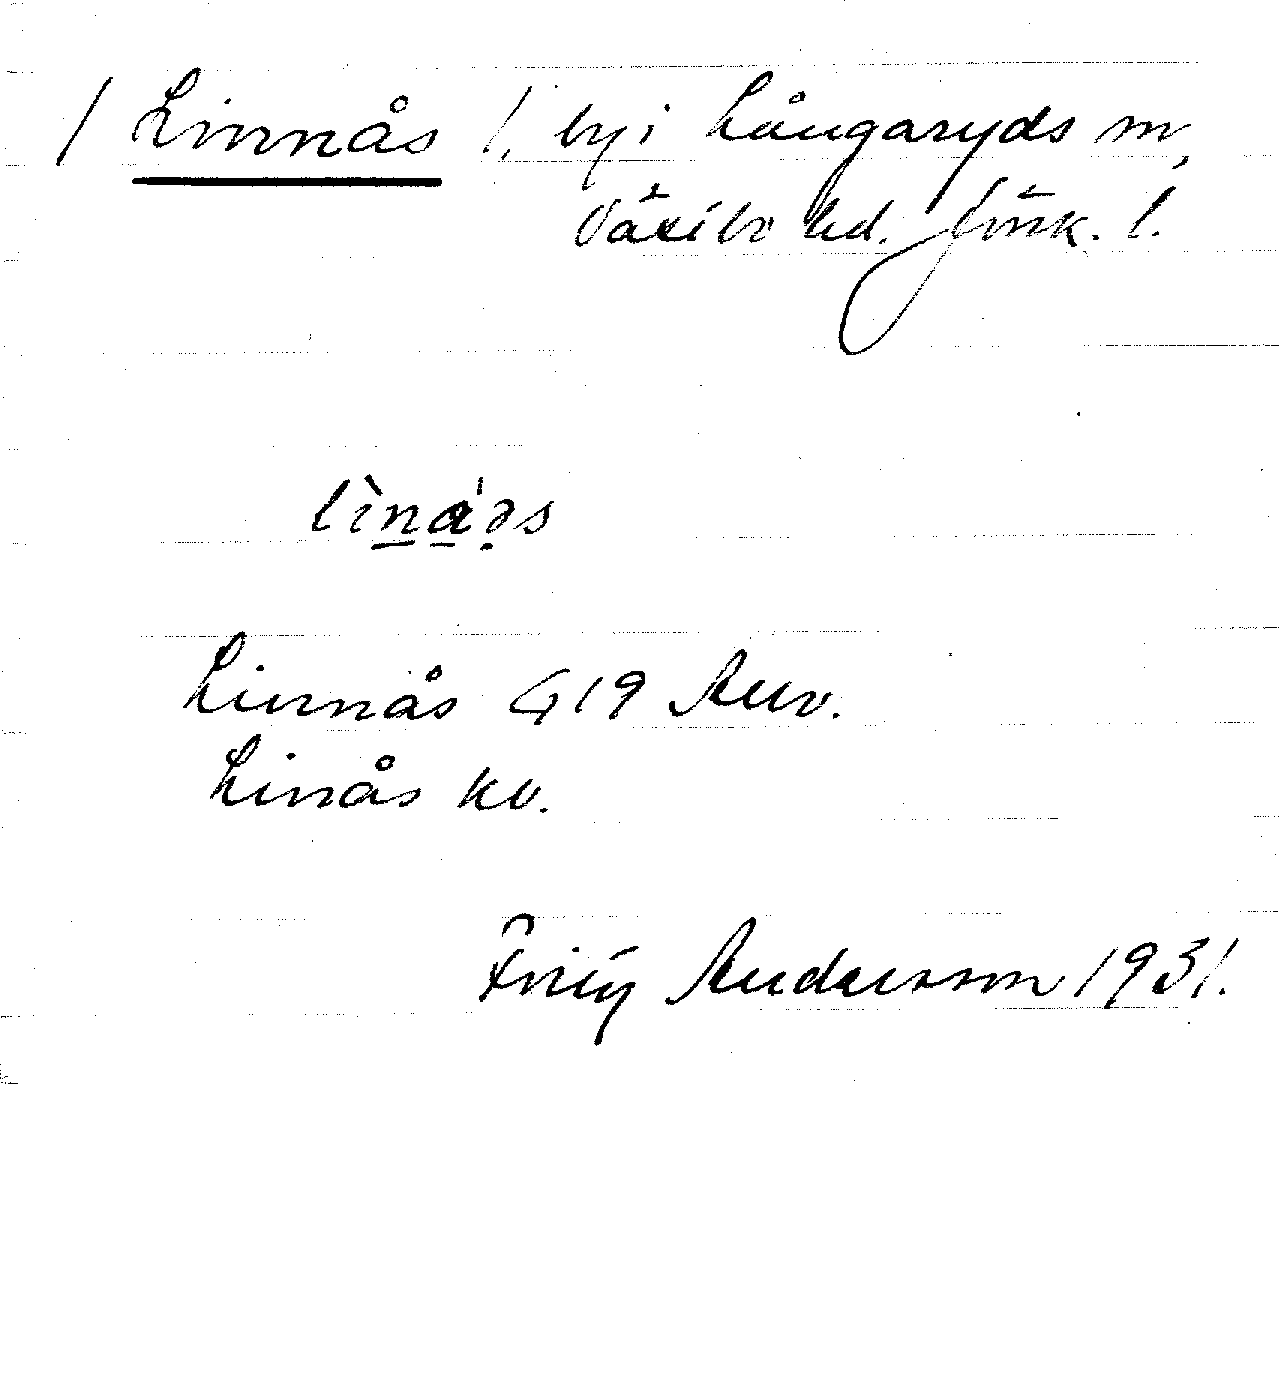 / Linnås /, by i Långaryds sn,
Västbo hd. Jönk. l.
lìna̍əs
Linnås G 19 Anv.
Linås kv.
Anderson 1931.